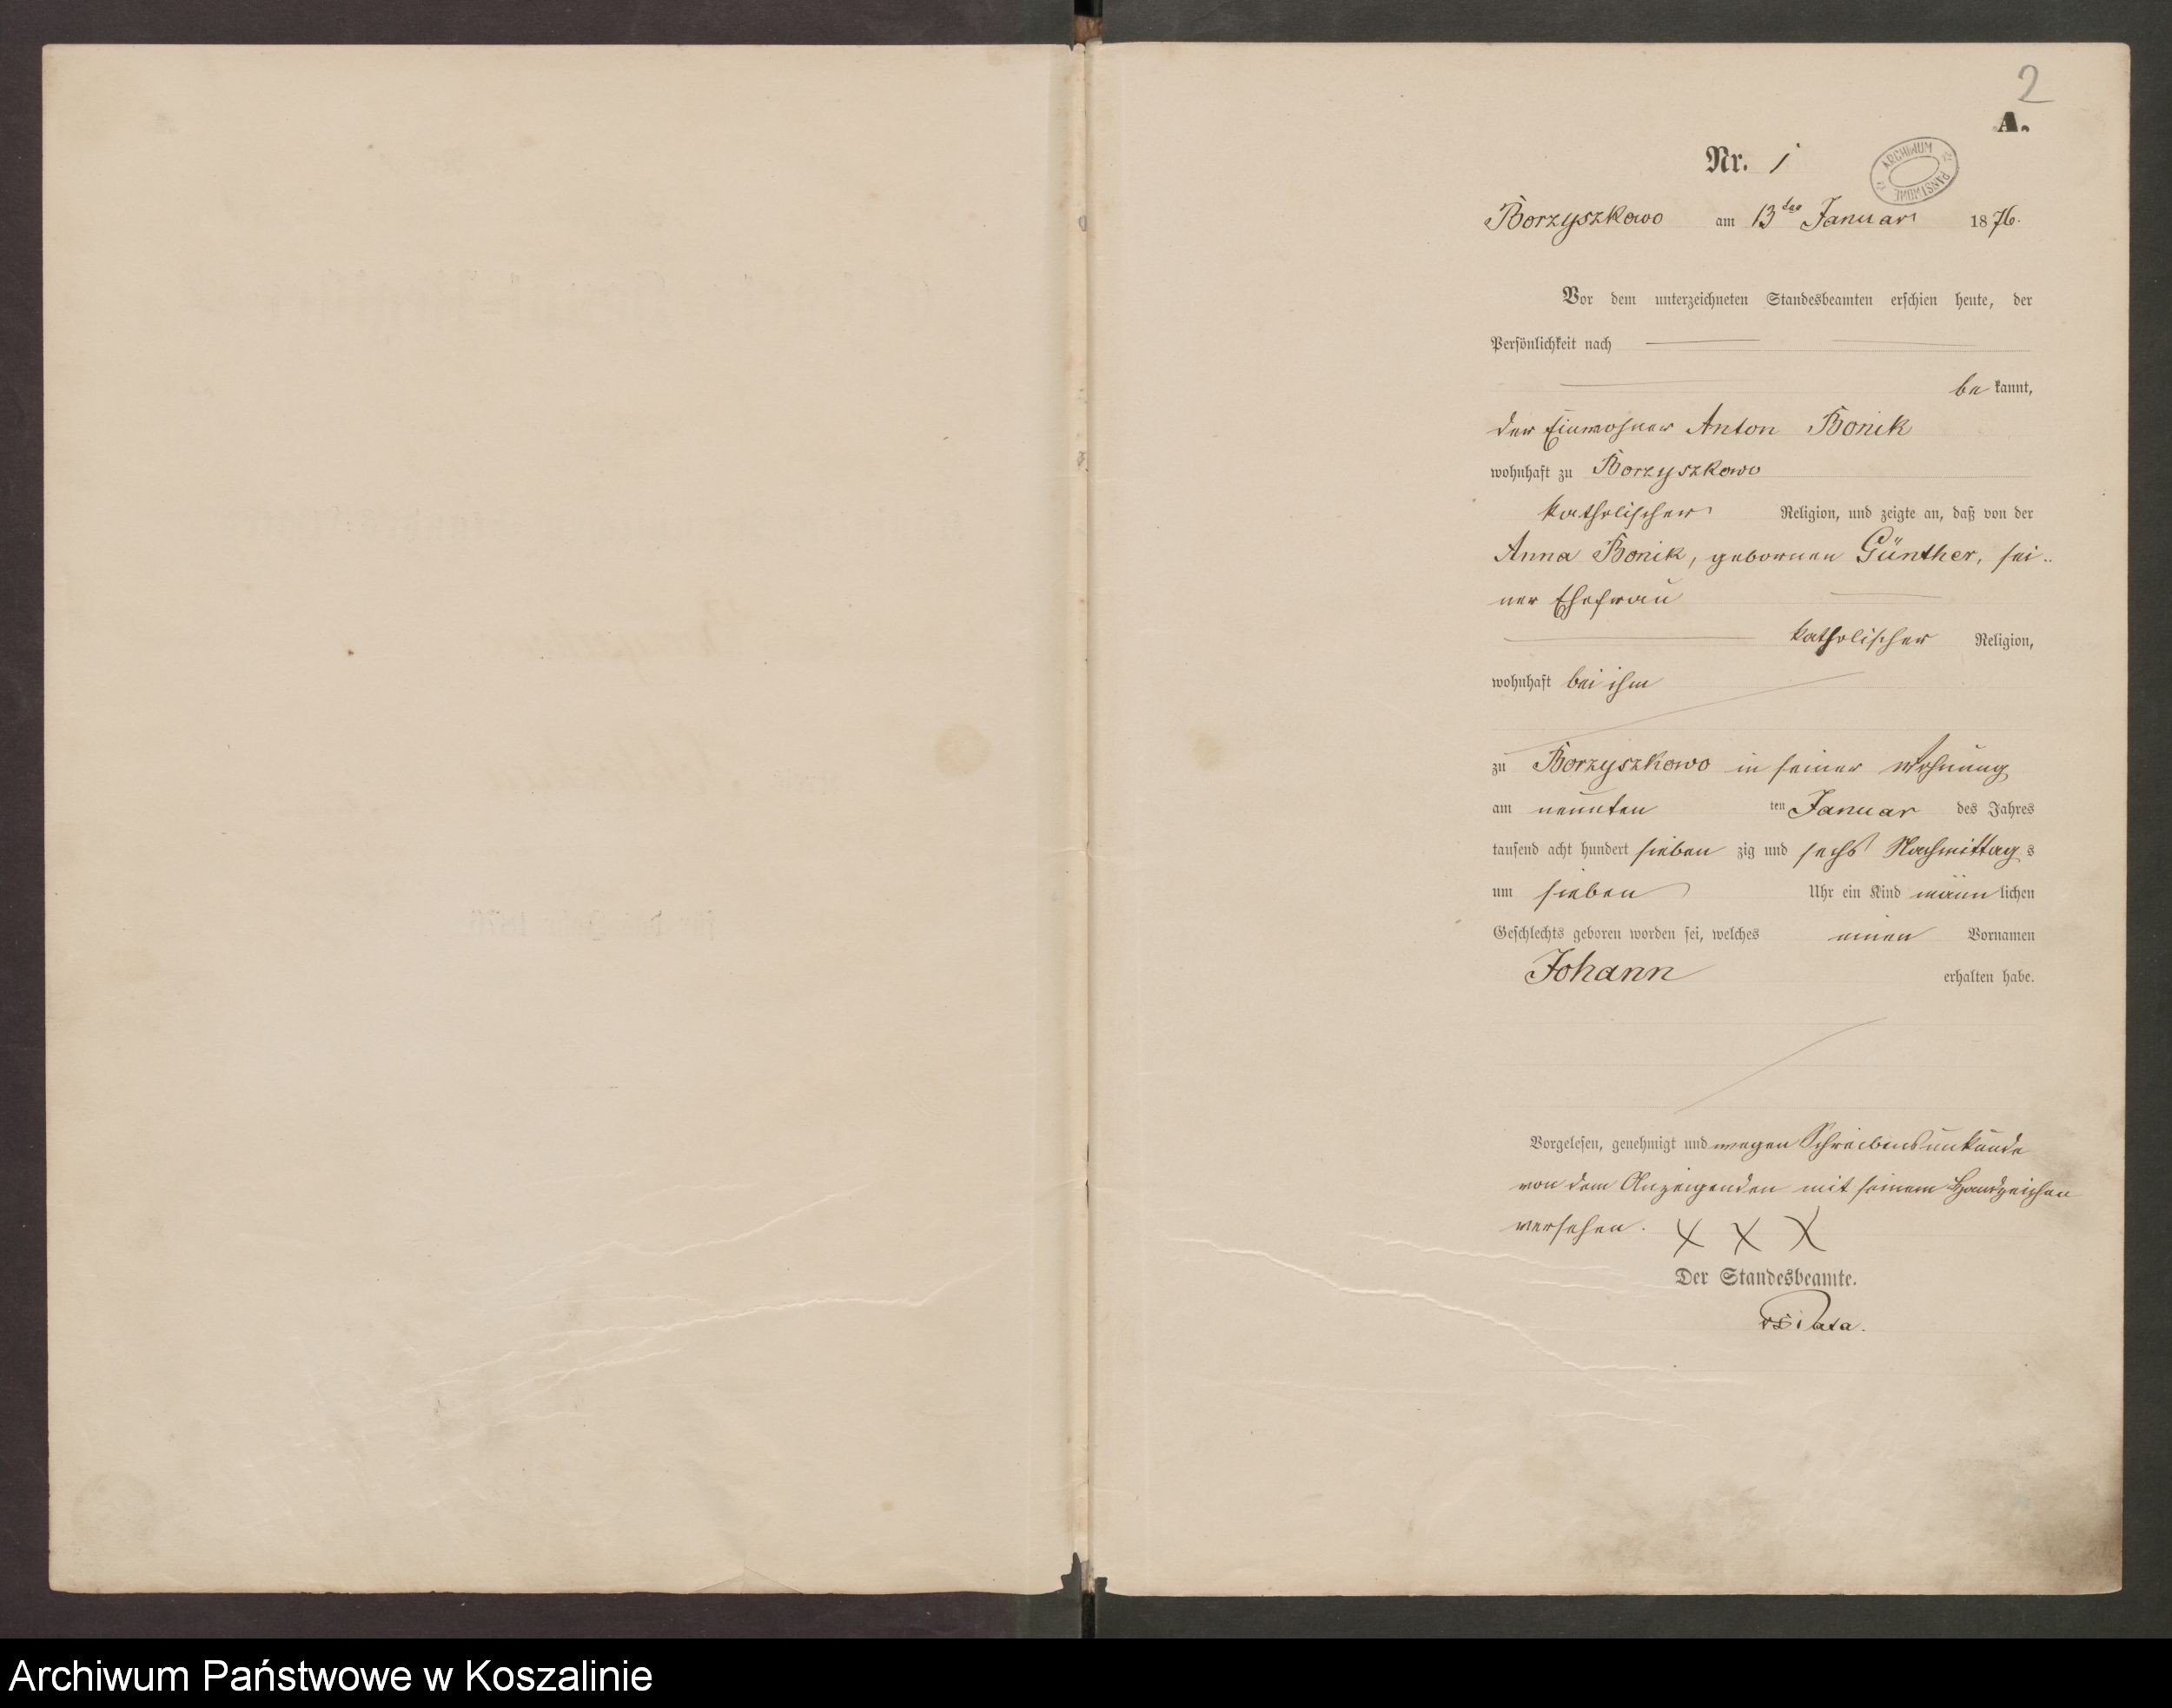 2
A.
Nr. 1
ARCHIWUM PAŃSTWOWE
Borzyszkowo am 13ten Januar 1876.
Vor dem unterzeichneten Standesbeamten erschien heute, der
Persönlichkeit nach
be kannt,
der Einwohner Anton Bonik
wohnhaft zu Borzyszkowo
katholischer Religion, und zeigte an, daß von der
Anna Bonik, gebornen Günther, sei-
ner Ehefrau
katholischer Religion,
wohnhaft bei ihm
zu Borzyszkowo in seiner Wohnung
am neunten ten Januar des Jahres
tausend acht hundert sieben zig und sechs Nachmittag s
um sieben Uhr ein Kind männ lichen
Geschlechts geboren worden sei, welches einen Vornamen
Johann erhalten habe.
Vorgelesen, genehmigt und wegen Schreibensunkunde
von dem Anzeigenden mit seinem Handzeichen
versehen. X X X
Der Standesbeamte.
Archiwum Państwowe w Koszalinie